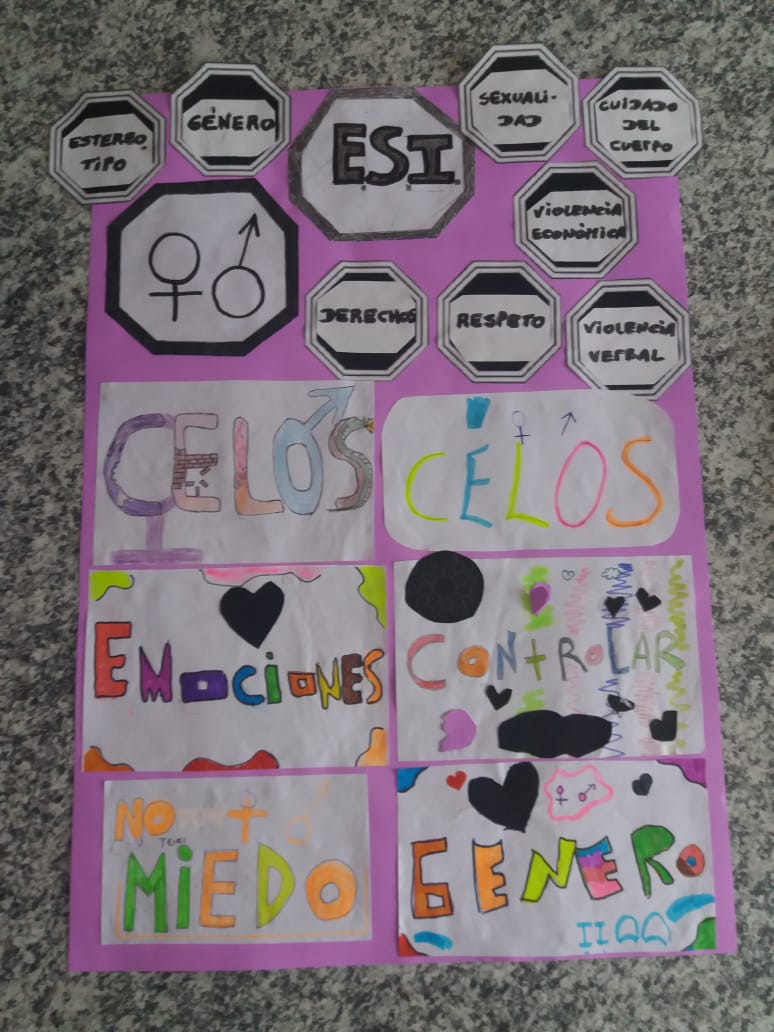 ESTEREO.
TIPO
GÉNERO
E.S.I.
SEXUALI-
DAD
CUIDADO
DEL
CUERPO
VIOLENCIA
ECONÓMICA
DERECHOS
RESPETO
VIOLENCIA
VERBAL
CELOS
CELOS
EMOCIONES
CONTROLAR
NO
MiEDO
GENERO